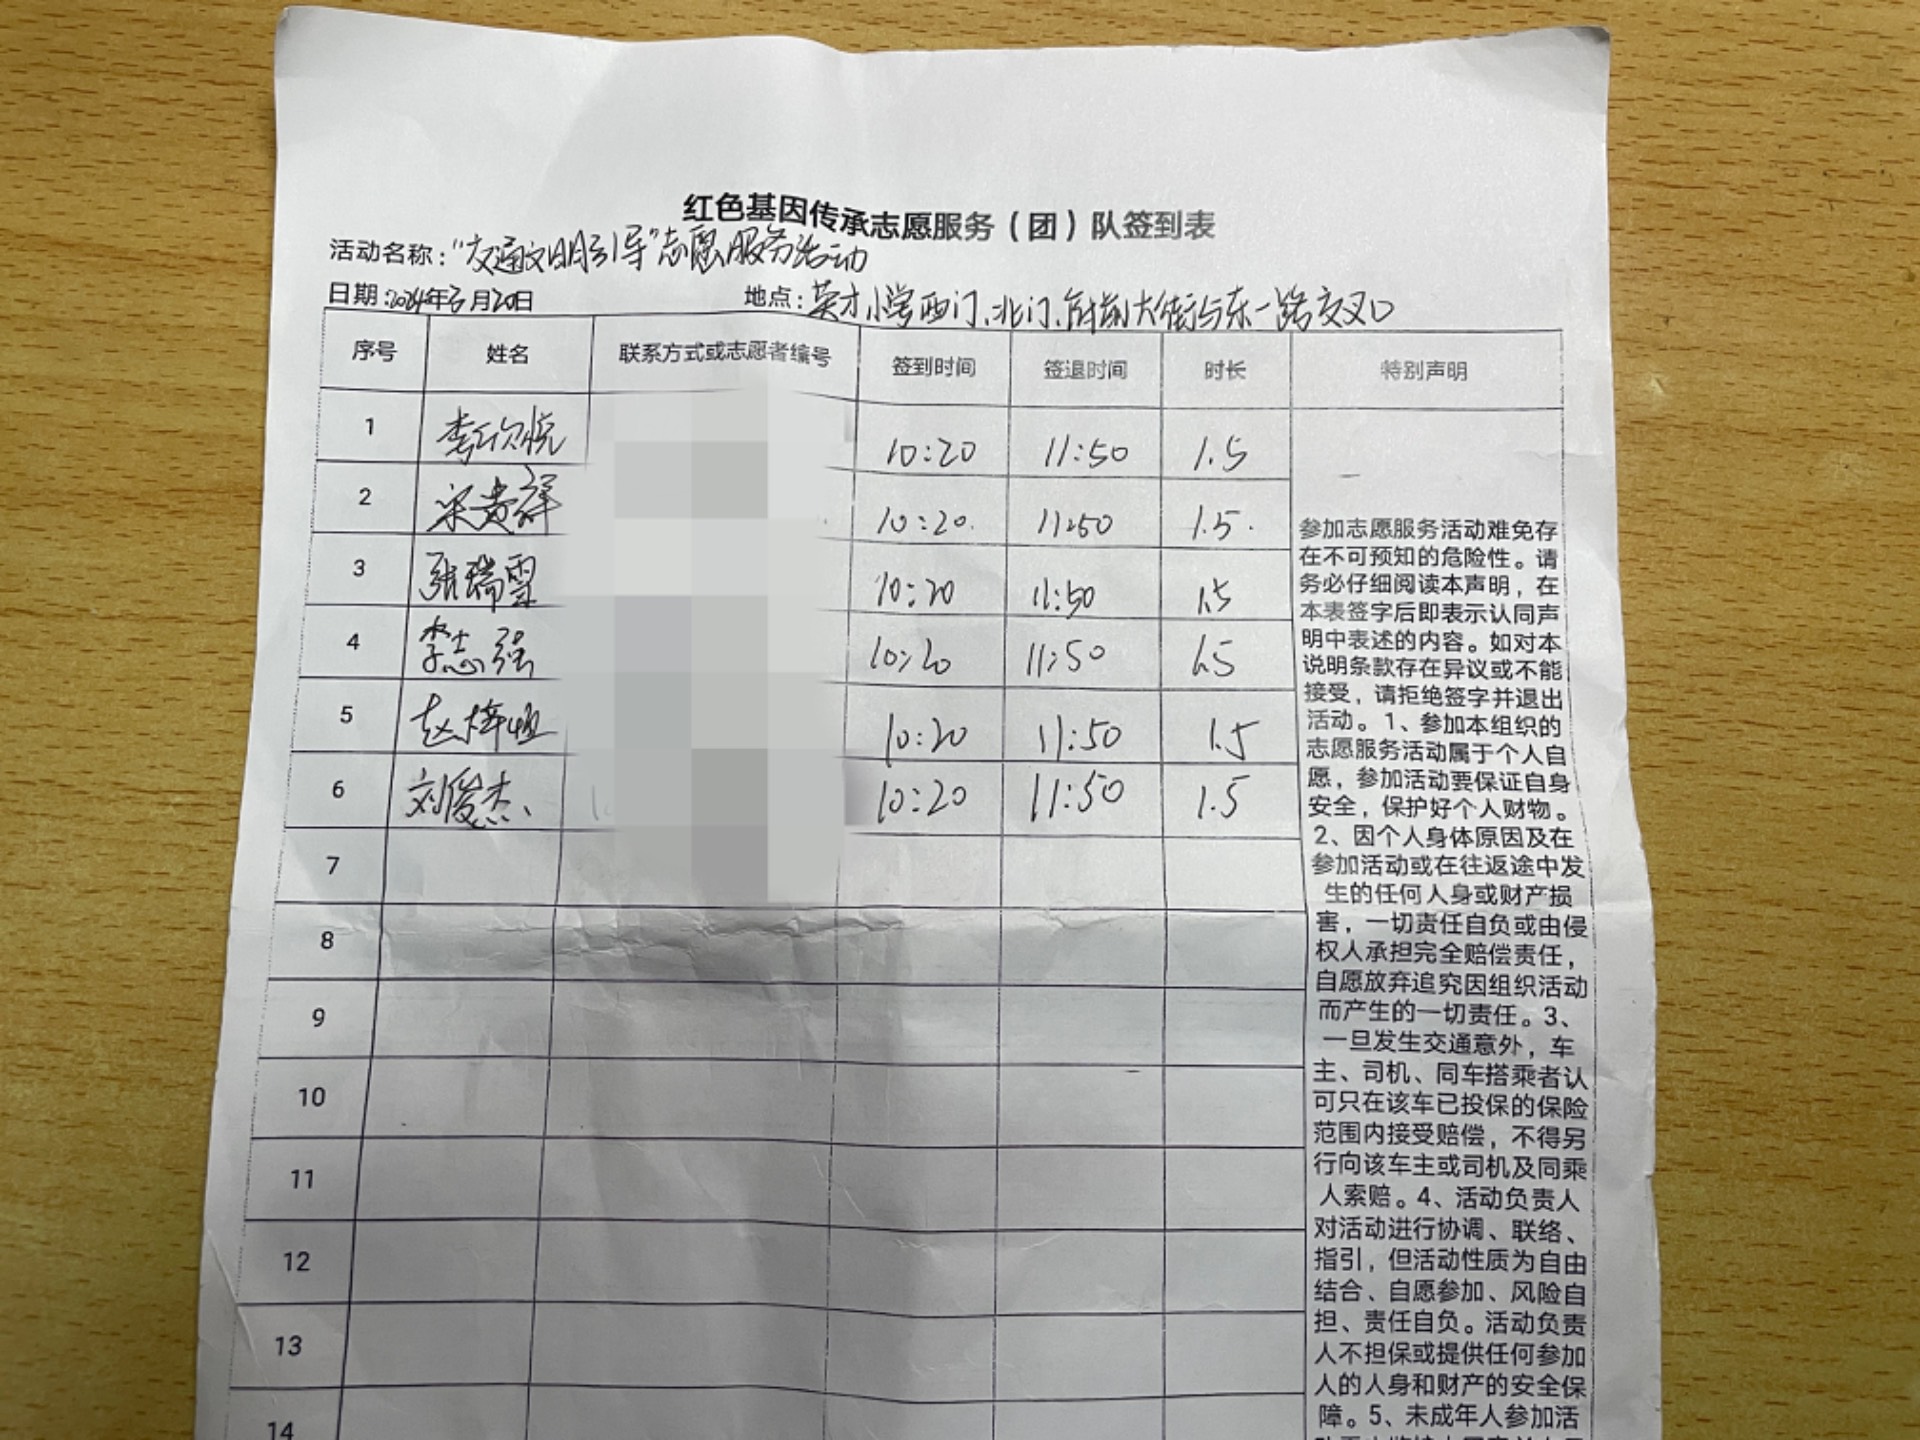 红色基因传承志愿服务（团）队签到表
活动名称："交通文明引导"志愿服务活动
日期：2024年3月20日 地点：英才小学西门、北门、府前大街与东一路交叉口
序号 姓名 联系方式或志愿者编号 签到时间 签退时间 时长 特别声明
1 李欣悦 10:20 11:50 1.5
2 宋贵祥 10:20. 11:50 1.5.
3 张瑞雪 10:20 11:50 1.5
4 李志强 10:20 11:50 1.5
5 赵梓恒 10:20 11:50 1.5
6 刘俊杰 10:20 11:50 1.5
7
8
9
10
11
12
13
14
参加志愿服务活动难免存
在不可预知的危险性。请
务必仔细阅读本声明，在
本表签字后即表示认同声
明中表述的内容。如对本
说明条款存在异议或不能
接受，请拒绝签字并退出
活动。1、参加本组织的
志愿服务活动属于个人自
愿，参加活动要保证自身
安全，保护好个人财物。
2、因个人身体原因及在
参加活动或在往返途中发
生的任何人身或财产损
害，一切责任自负或由侵
权人承担完全赔偿责任，
自愿放弃追究因组织活动
而产生的一切责任。3、
一旦发生交通意外，车
主、司机、同车搭乘者认
可只在该车已投保的保险
范围内接受赔偿，不得另
行向该车主或司机及同乘
人索赔。4、活动负责人
对活动进行协调、联络、
指引，但活动性质为自由
结合、自愿参加、风险自
担、责任自负。活动负责
人不担保或提供任何参加
人的人身和财产的安全保
障。5、未成年人参加活